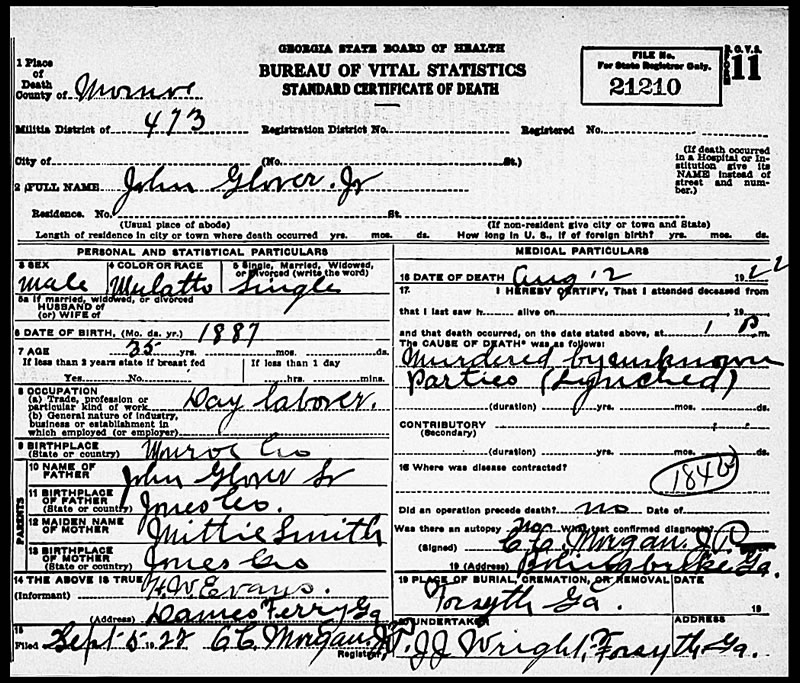 GEORGIA STATE BOARD OF HEALTH
BUREAU OF VITAL STATISTICS
STANDARD CERTIFICATE OF DEATH
FILE No.
For State Registrar Only.
21210
11
1 Place
of
Death
County of Monroe
Militia District of 473 Registration District No. Registered No.
City of (No. St.)
(If death occurred
in a Hospital or In-
stitution give its
NAME instead of
street and num-
ber.)
2 FULL NAME John Glover. Jr
Residence. No. St.
(Usual place of abode) (If non-resident give city or town and State)
Length of residence in city or town where death occurred yrs. mos. ds. How long in U. S., if of foreign birth? yrs. mos. ds.
PERSONAL AND STATISTICAL PARTICULARS
3 SEX
male
4 COLOR OR RACE
Mulatto
5 Single, Married, Widowed,
or Divorced (write the word)
Single
5a If married, widowed, or divorced
HUSBAND of
(or) WIFE of
6 DATE OF BIRTH, (Mo. da. yr.) 1887
7 AGE 35 yrs. mos. ds.
If less than 2 years state if breast fed
Yes No
If less than 1 day
hrs. mins.
8 OCCUPATION
(a) Trade, profession or
particular kind of work
Day laborer.
(b) General nature of industry,
business or establishment in
which employed (or employer)
9 BIRTHPLACE
(State or country) Monroe Co
PARENTS
10 NAME OF
FATHER John Glover Sr
11 BIRTHPLACE
OF FATHER
(State or country) Jones Co.
12 MAIDEN NAME
OF MOTHER Mittie Smith
13 BIRTHPLACE
OF MOTHER
(State or country) Jones Co
14 THE ABOVE IS TRUE
(Informant) H.W. Evans.
(Address) Dames Ferry Ga
15
Filed Sept 5 1922 C C Morgan. J.P.
Registrar
MEDICAL PARTICULARS
16 DATE OF DEATH Aug 12 1922
17. I HEREBY CERTIFY, That I attended deceased from
that I last saw h alive on 19
and that death occurred, on the date stated above, at 1 P m.
The CAUSE OF DEATH* was as follows:
Murdered by unknown
Parties (Lynched)
(duration) yrs. mos. ds.
CONTRIBUTORY
(Secondary)
(duration) yrs. mos. ds.
18 Where was disease contracted?
Did an operation precede death? no Date of
Was there an autopsy no What test confirmed diagnosis?
(Signed) C C Morgan. J P
19 (Address) Bolingbroke, Ga.
19 PLACE OF BURIAL, CREMATION, OR REMOVAL DATE
Forsyth Ga. 19
20 UNDERTAKER ADDRESS
J J Wright, Forsyth Ga.